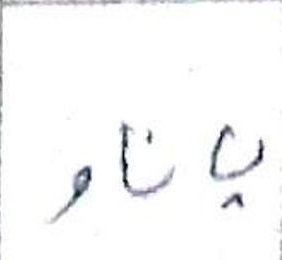 پ ناو